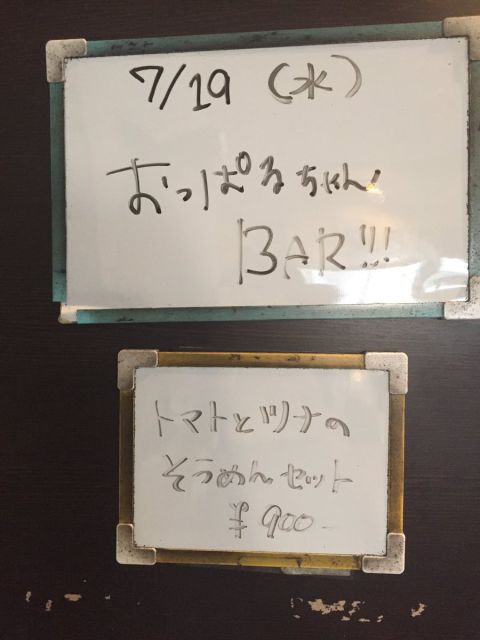 7/19 (水)
おっぱるちゃん
BAR!!!
トマトとツナの
そうめんセット
¥900-